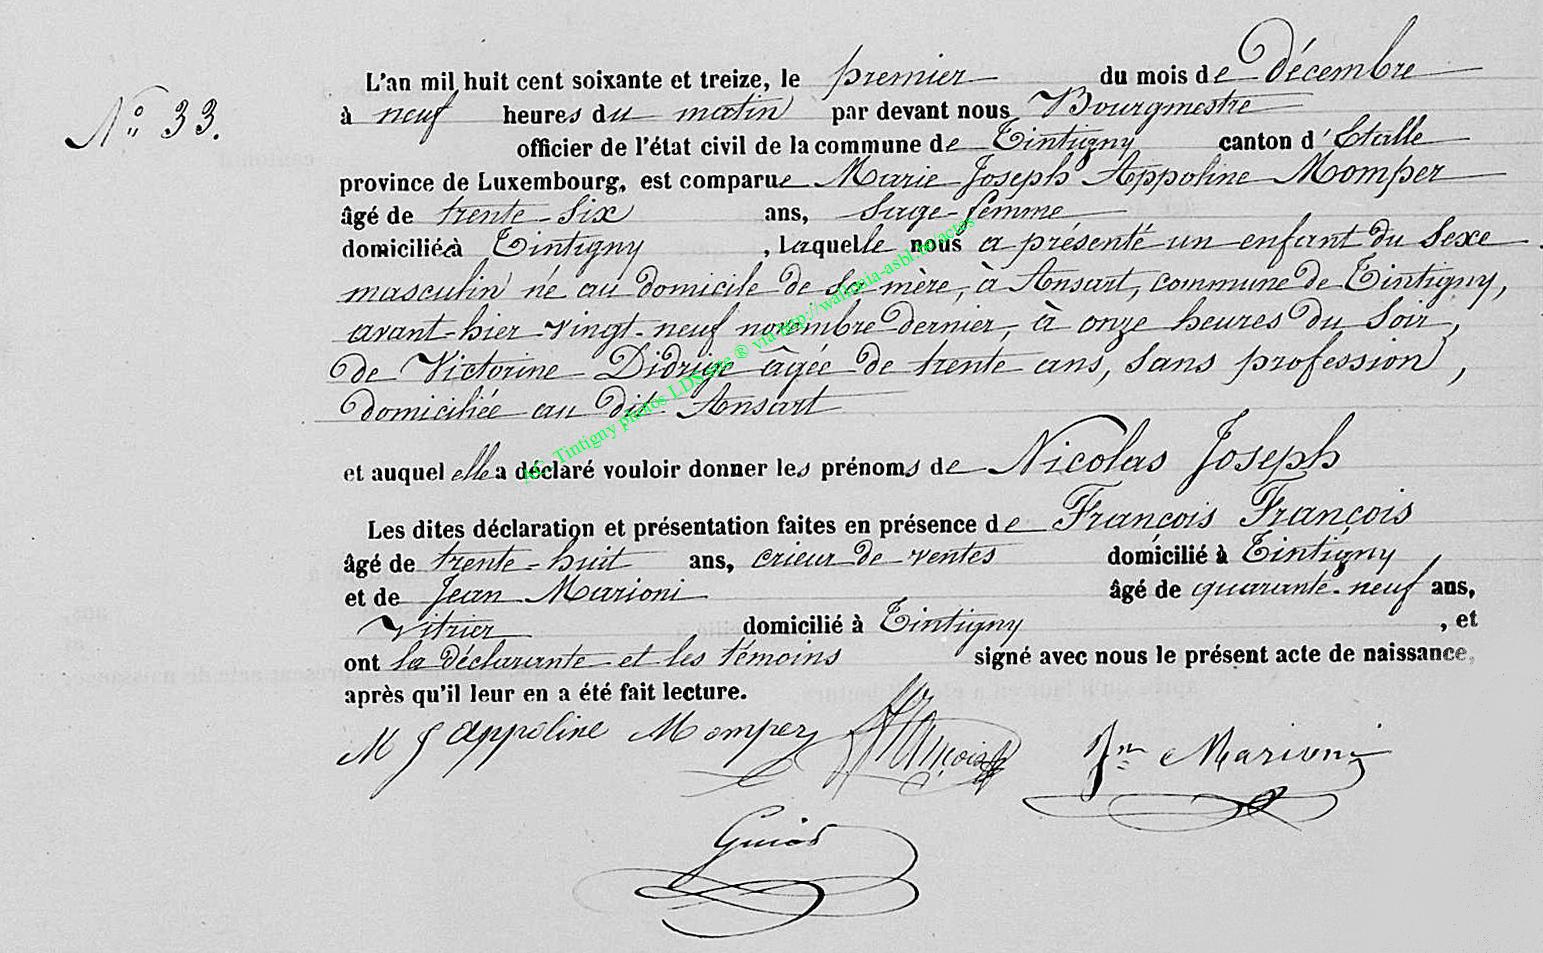 N° 33.
L'an mil huit cent soixante et treize, le premier du mois de Décembre
à neuf heures du matin par devant nous Bourgmestre
officier de l'état civil de la commune de Tintigny canton d'Etalle
province de Luxembourg, est comparue Marie Joseph Appoline Momper
âgé de trente-six ans, sage-femme
domiciliée à Tintigny, laquelle nous a présenté un enfant du sexe
masculin né au domicile de sa mère, à Ansart, commune de Tintigny,
avant-hier vingt-neuf novembre dernier, à onze heures du soir,
de Victorine Didrige âgée de trente ans, sans profession,
domiciliée au dit Ansart
et auquel elle a déclaré vouloir donner les prénoms de Nicolas Joseph
Les dites déclaration et présentation faites en présence de François François
âgé de trente-huit ans, crieur de ventes domicilié à Tintigny
et de Jean Marioni âgé de quarante-neuf ans,
Vitrier domicilié à Tintigny, et
ont la déclarante et les témoins signé avec nous le présent acte de naissance,
après qu'il leur en a été fait lecture.
M J Appoline Momper François Jn Marioni
AC Tintigny photos LDS site ® via http://wallonia-asbl.be/actes